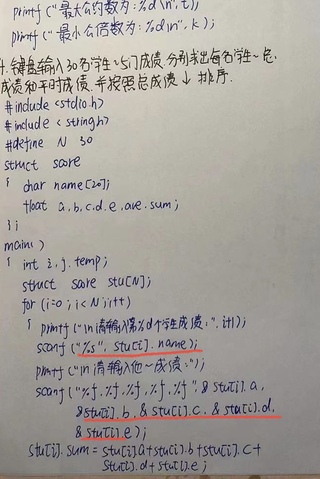 printf("最大公约数为:%d\n",t);
printf("最小公倍数为:%d\n",k);
键盘输入30名学生~5门成绩.分别求出每名学生~总
成绩和平时成绩.并按照总成绩↓排序.
#include<stdio.h>
#include<string.h>
#define N 30
struct score
{ char name[20];
float a,b,c,d,e,ave,sum;
};
main()
{ int i,j,temp;
struct score stu[N];
for(i=0;i<N;i++)
{ printf("\n请输入第%d个学生成绩:",i+1);
scanf("%s",stu[i].name);
printf("\n请输入他~成绩:");
scanf("%f,%f,%f,%f,%f",&stu[i].a,
&stu[i].b,&stu[i].c,&stu[i].d,
&stu[i].e);
stu[i].sum=stu[i].a+stu[i].b+stu[i].c+
stu[i].d+stu[i].e;